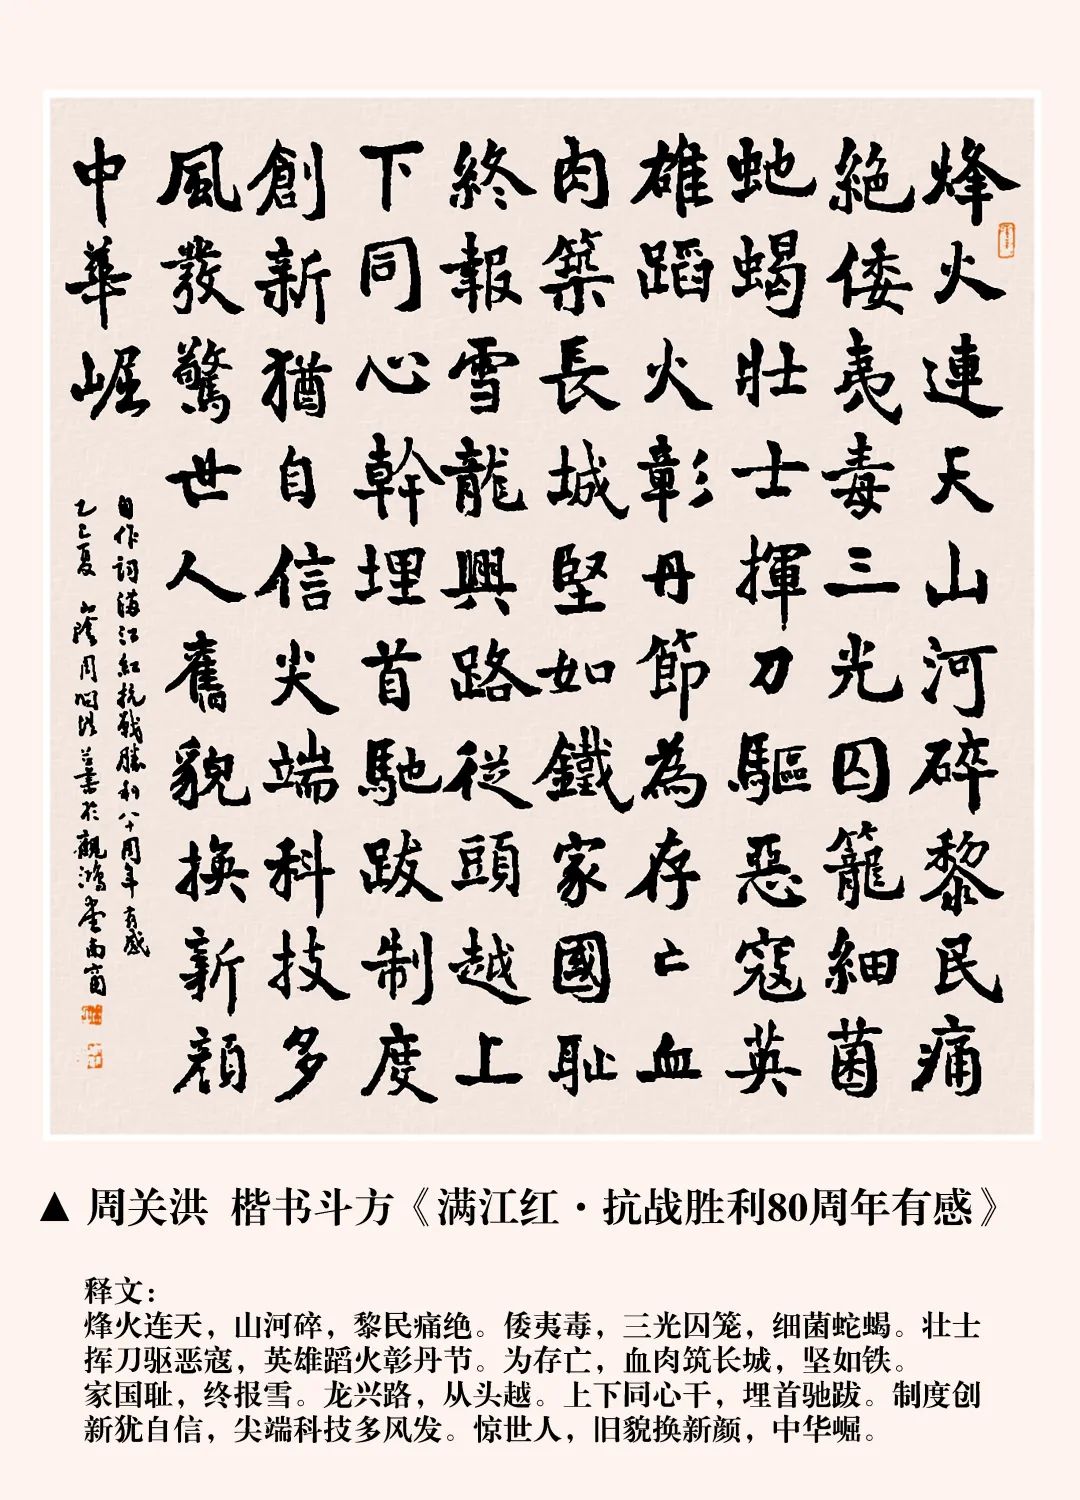 烽火連天山河碎黎民痛
絕倭夷毒三光囚籠細菌
虵蝎壯士揮刀驅惡寇英
雄蹈火彰丹節為存亡血
肉築長城堅如鐵家國耻
終報雪龍興路從頭越上
下同心幹埋首馳跋制度
創新猶自信尖端科技多
風發驚世人舊貌換新顔
中華崛
自作詞滿江紅抗戰勝利八十周年有感
乙巳夏 周関洪并書於觀鴻堂南窗
▲ 周关洪 楷书斗方《满江红·抗战胜利80周年有感》
释文：
烽火连天，山河碎，黎民痛绝。倭夷毒，三光囚笼，细菌蛇蝎。壮士
挥刀驱恶寇，英雄蹈火彰丹节。为存亡，血肉筑长城，坚如铁。
家国耻，终报雪。龙兴路，从头越。上下同心干，埋首驰跋。制度创
新犹自信，尖端科技多风发。惊世人，旧貌换新颜，中华崛。